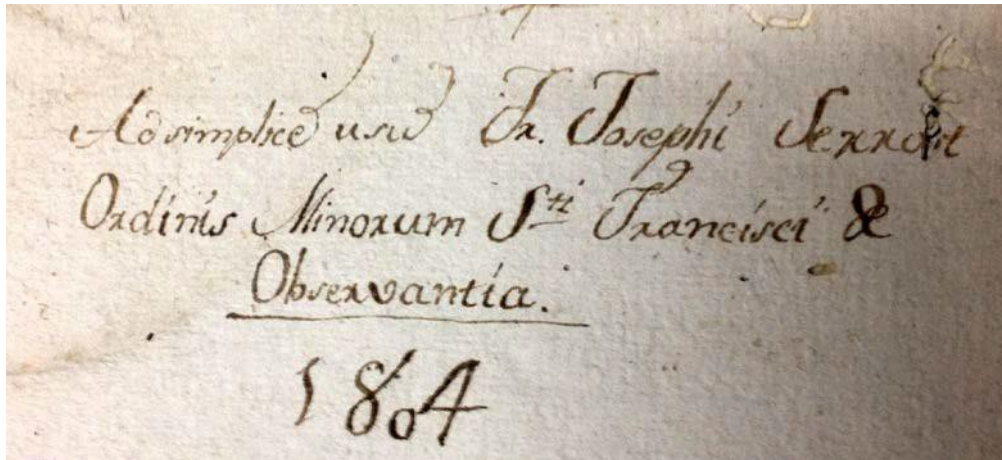 Ad simplicē usū Fr. Josephi
Ordinis Minorum Sti Francisci de
Observantia.
1804